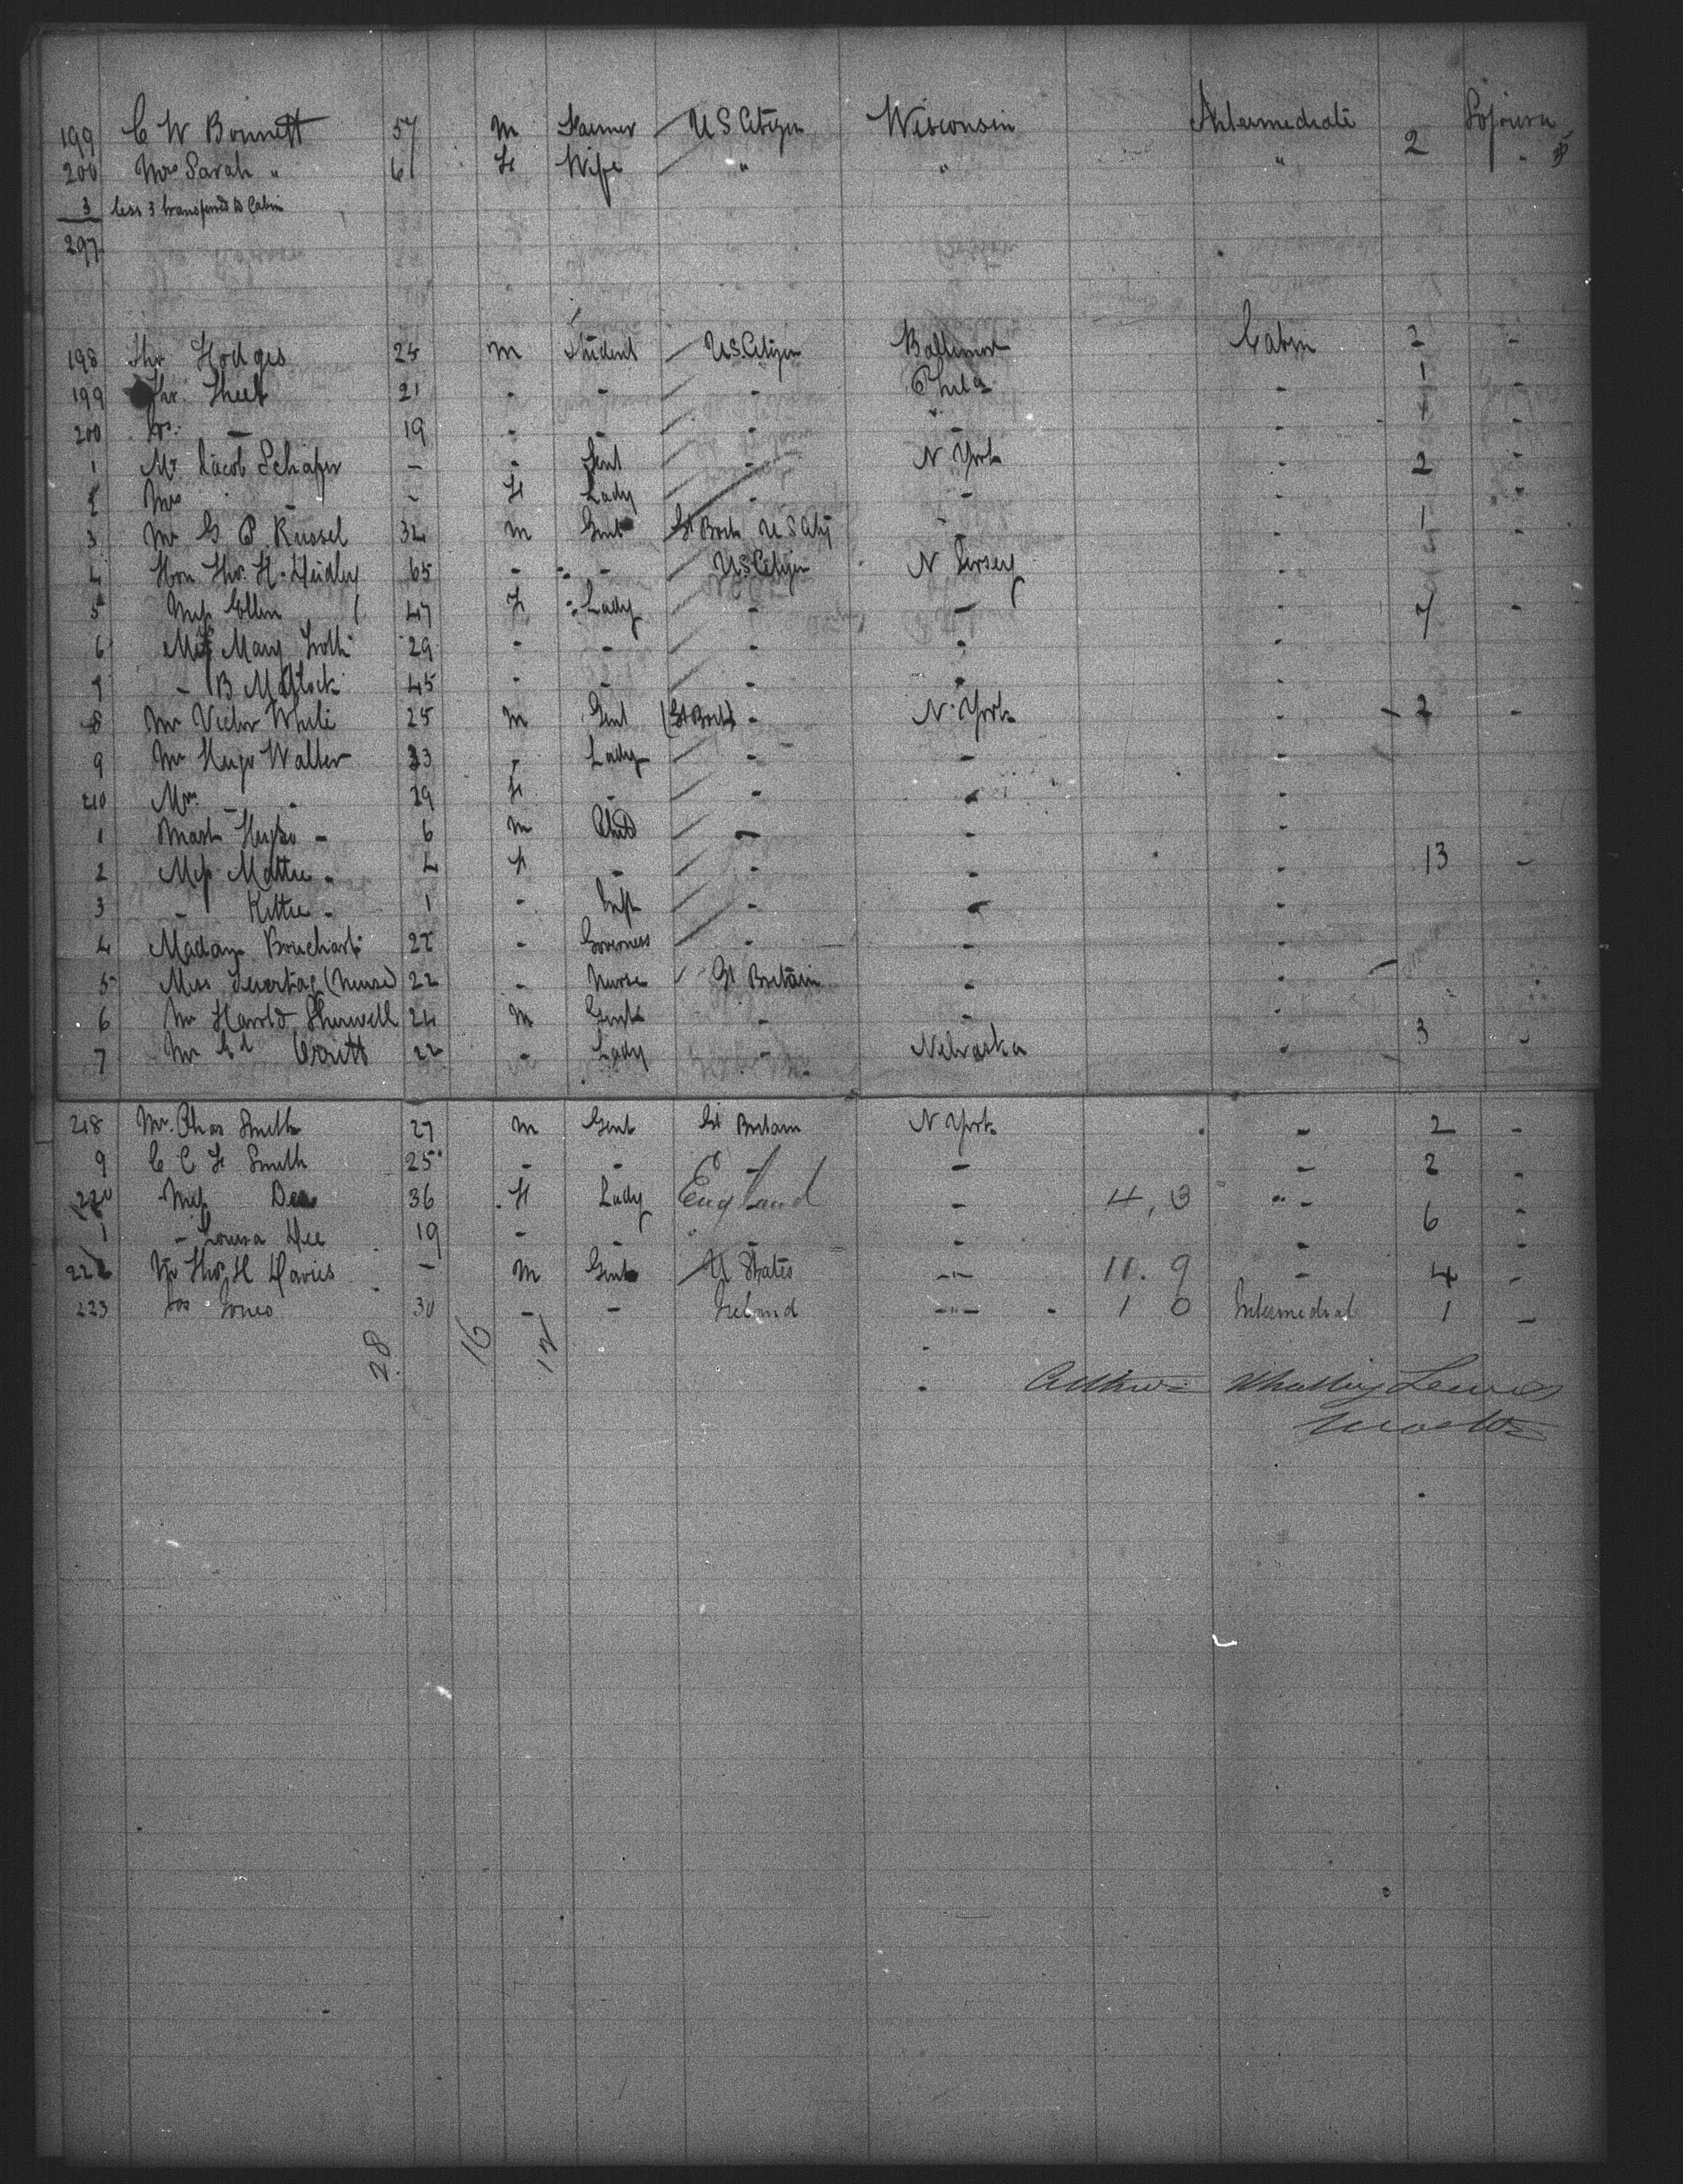 199 C W Bonnett 57 M Farmer U S Citizen Wisconsin Intermediate 2 Sojourn
200 Mrs Sarah " 61 F Wife " " " "
3 less 3 transferred to Cabin
297
198 Thos Hodges 25 M Student U.S. Citizen Baltimore Cabin 2 -
199 21 - - - Phila - 1 -
200 - 19 - - - - - 1 -
1 Mr Jacob Schafer - - Gent - N York - 2 -
2 Mrs - - F Lady - - - -
3 Mr G P Russel 34 M Gent Gt Brit U S City - - 1 -
4 Hon Thos. H. Dudley 65 - - U S Citizen N Jersey -
5 Miss Ellen 47 F Lady - - - 7 -
6 Miss Mary 29 - - - - -
7 - B Matlock 45 - - - - -
8 Mr Victor 25 M Gent (Gt Brit) - N. York - 2 -
9 Mr Hugo Walter 33 - Lady - - -
210 Mrs - - 29 F - - - -
1 Mast Hugo - 6 M Child - - -
2 Miss Mattie - 4 F - - - - 13 -
3 - Kittie - 1 - Inft - - -
4 Madam Bouchart 22 - Governess - - -
5 Miss (Nurse) 22 - Nurse Gt Britain - -
6 Mr Harold Sherwell 24 M Gent - - - 3 -
7 Mr 22 - Lady - Nebraska -
218 Mr. Chas Smith 27 M Gent Gt Britain N York - 2 -
9 C C H Smith 25 - - - - - 2 -
220 Miss Dee 36 F Lady England - 4, 3 " - 6 -
1 - Louisa Dee 19 - - - - - -
222 Mr Thos H Davies - M Gent U States -"- 11. 9 - 4 -
223 Jos Jones 30 - - Ireland -"- 1 0 Intermediat 1 -
28 16 12
Whalley Lewis